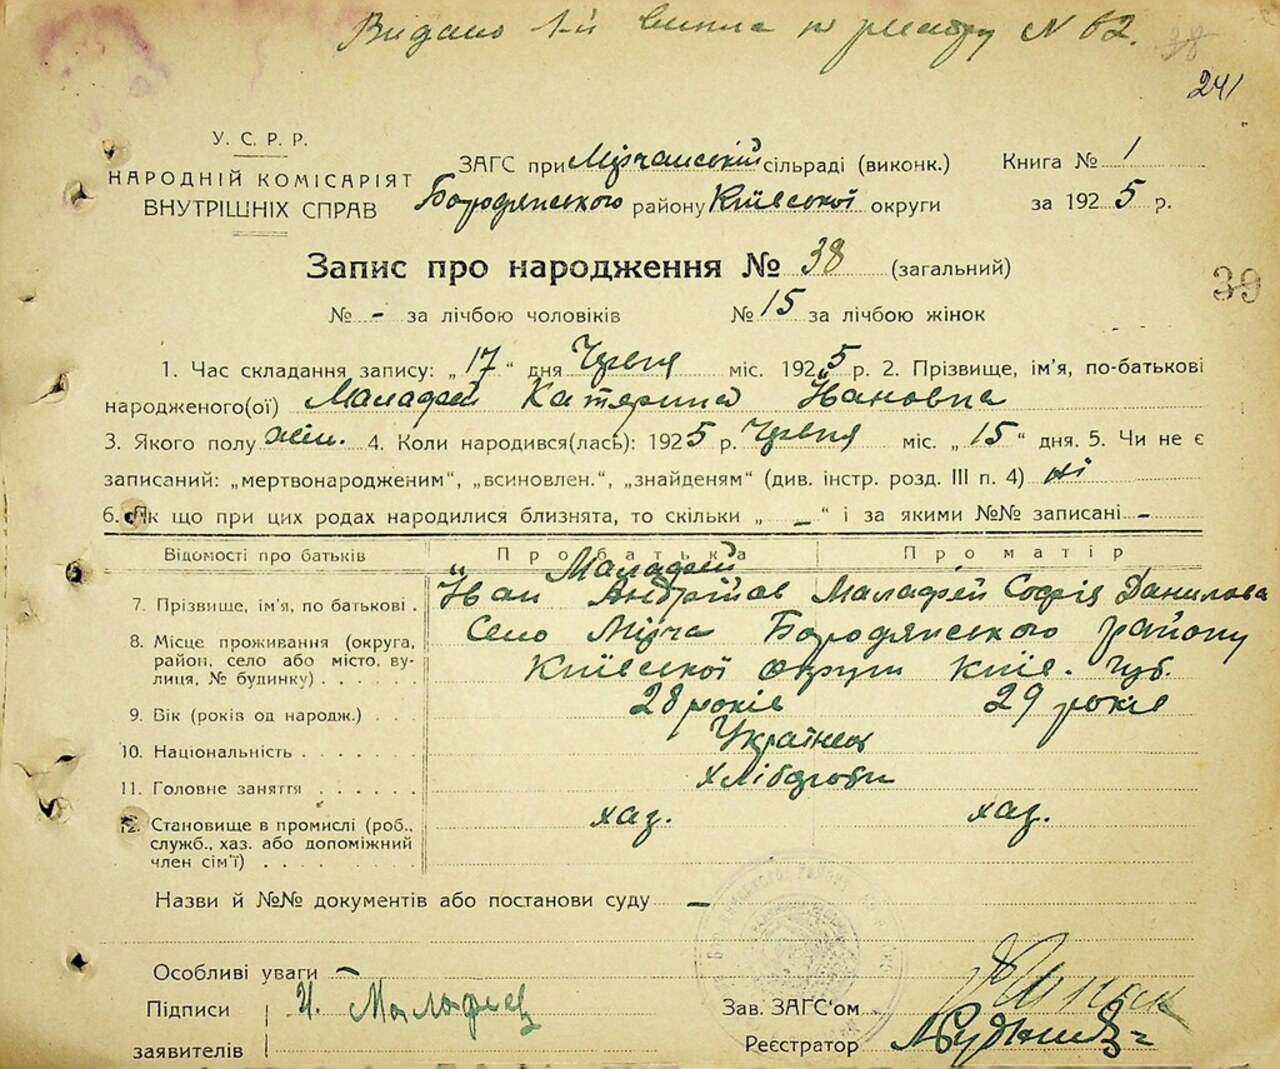 Видано 1-й випис по реєстру N 62. 38
241
У. С. Р. Р.
НАРОДНІЙ КОМІСАРІЯТ
ВНУТРІШНІХ СПРАВ
ЗАГС при Мірчанській сільраді (виконк.)
Бородянського району Київської округи
Книга № 1
за 1925 р.
Запис про народження № 38 (загальний)
39
№ - за лічбою чоловіків № 15 за лічбою жінок
1. Час складання запису: „17“ дня Червня міс. 1925 р. 2. Прізвище, ім'я, по-батькові
народженого(ої) Малафей Катерина Ивановна
3. Якого полу жін. 4. Коли народився(лась): 1925 р. Червня міс. „15“ дня. 5. Чи не є
записаний: „мертвонародженим“, „всиновлен.“, „знайденям“ (див. інстр. розд. III п. 4) ні
6. Як що при цих родах народилися близнята, то скільки „ – “ і за якими №№ записані –
Відомості про батьків Про батька Про матір
Малафей
7. Прізвище, ім'я, по батькові . Иван Андріїв Малафей Софія Данилова
8. Місце проживання (округа, Село Мірча Бородянського району
район, село або місто, ву-
лиця, № будинку) . . . . . . Київської округи Київ. губ.
9. Вік (років од народж.) . . . 28 років 29 років
10. Національність . . . . . . Українец
11. Головне заняття . . . . . . хлібороби
12. Становище в промислі (роб., хаз. хаз.
служб., хаз. або допоміжний
член сім'ї) . . . . . . . .
Назви й №№ документів або постанови суду –
Особливі уваги –
Підписи И. Малафей
заявителів
Зав. ЗАГС'ом
Реєстратор